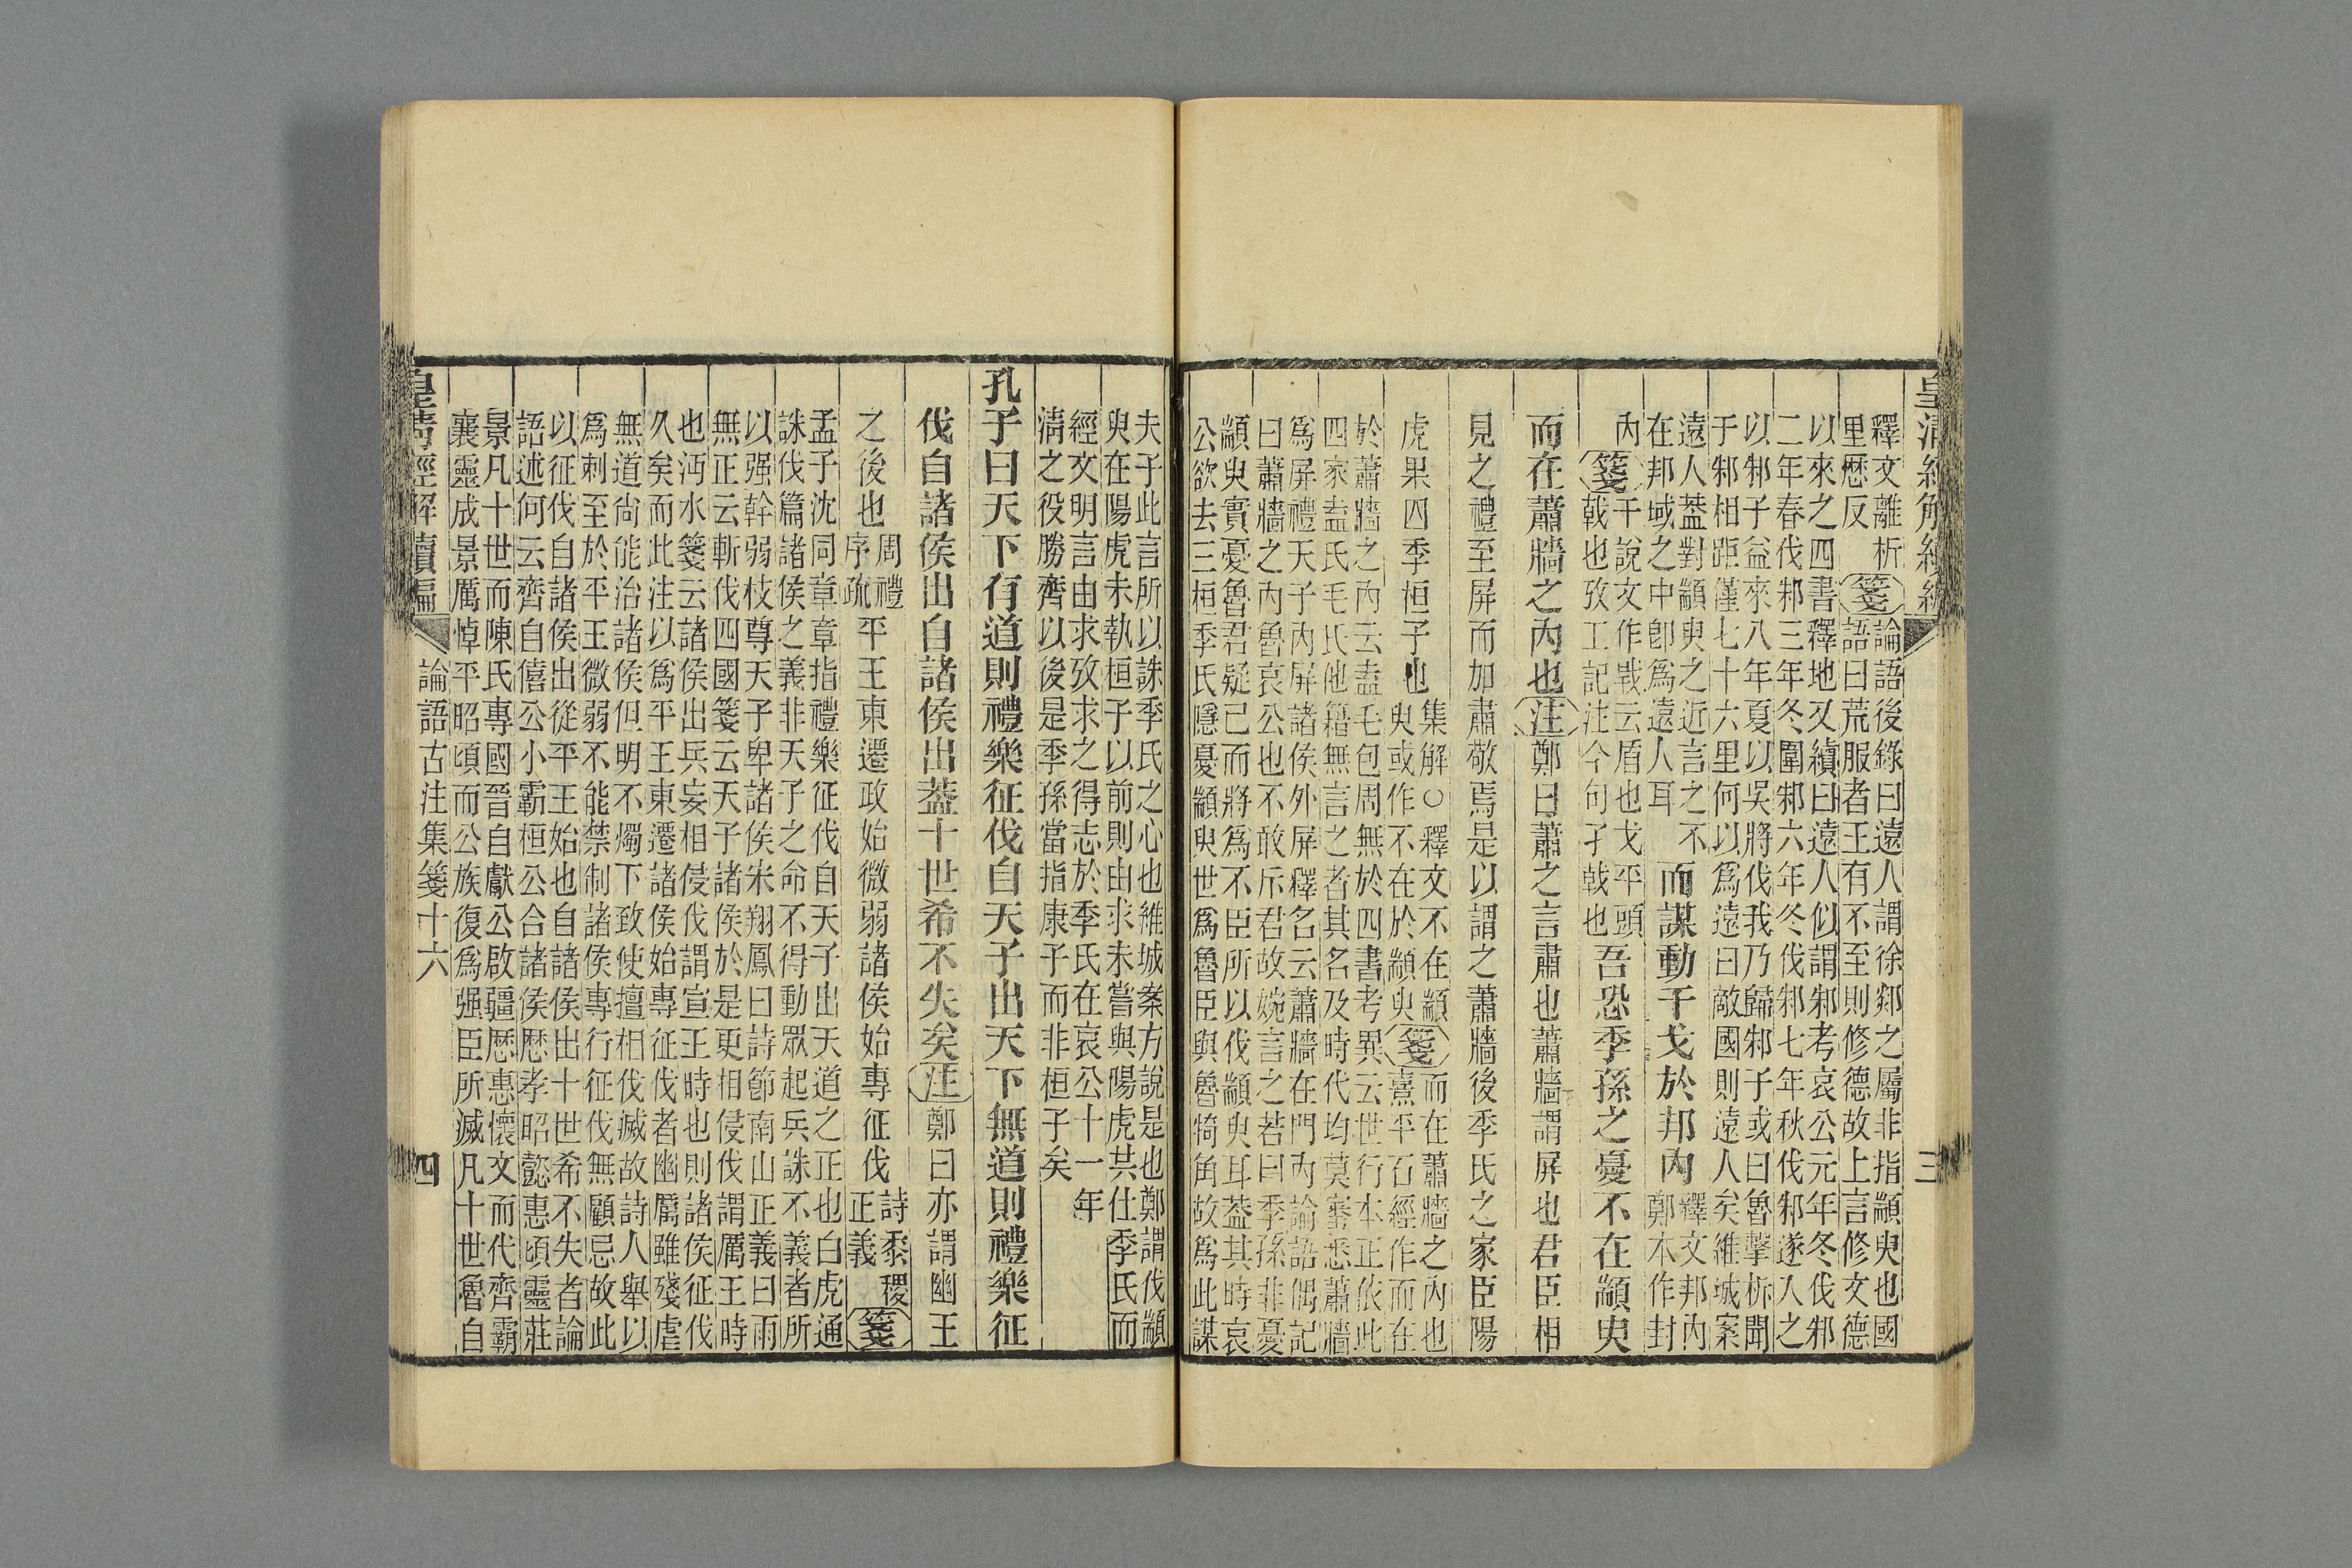 皇清經解續編
三
釋文離析箋論語後錄曰遠人謂徐郯之屬非指顓臾也國
里厯反語曰荒服者王有不至則修德故上言修文德
以來之四書釋地又續曰遠人似謂邾考哀公元年冬伐邾
二年春伐邾三年冬圍邾六年冬伐邾七年秋伐邾遂入之
以邾子益來八年夏以吳將伐我乃歸邾子或曰魯擊柝聞
于邾相距僅七十六里何以爲遠曰敵國則遠人矣維城案
遠人葢對顓臾之近言之不
在邦域之中卽爲遠人耳
而謀動干戈於邦內
釋文邦內
鄭本作封
內
箋干說文作𢧀云盾也戈平頭
戟也攷工記注今句孑戟也
吾恐季孫之憂不在顓臾
而在蕭牆之內也注鄭曰蕭之言肅也蕭牆謂屏也君臣相
見之禮至屏而加肅敬焉是以謂之蕭牆後季氏之家臣陽
虎果囚季桓子也
集解○釋文不在顓
臾或作不在於顓臾
箋而在蕭牆之內也
熹平石經作而在
於蕭牆之內云盍毛包周無於四書考異云世行本正依此
四家盍氏毛氏他籍無言之者其名及時代均莫審悉蕭牆
爲屏禮天子內屏諸侯外屏釋名云蕭牆在門內論語偶記
曰蕭牆之內魯哀公也不敢斥君故婉言之若曰季孫非憂
顓臾實憂魯君疑己而將爲不臣所以伐顓臾耳葢其時哀
公欲去三桓季氏隱憂顓臾世爲魯臣與魯犄角故爲此謀
夫子此言所以誅季氏之心也維城案方說是也鄭謂伐顓
臾在陽虎未執桓子以前則由求未嘗與陽虎共仕季氏而
經文明言由求攷求之得志於季氏在哀公十一年
清之役勝齊以後是季孫當指康子而非桓子矣
孔子曰天下有道則禮樂征伐自天子出天下無道則禮樂征
伐自諸侯出自諸侯出葢十世希不失矣注鄭曰亦謂幽王
之後也
周禮
序疏
平王東遷政始微弱諸侯始專征伐
詩黍稷
正義
箋
孟子沈同章章指禮樂征伐自天子出天道之正也白虎通
誅伐篇諸侯之義非天子之命不得動眾起兵誅不義者所
以强幹弱枝尊天子卑諸侯宋翔鳳曰詩節南山正義曰雨
無正云斬伐四國箋云天子諸侯於是更相侵伐謂厲王時
也沔水箋云諸侯出兵妄相侵伐謂宣王時也則諸侯征伐
久矣而此注以爲平王東遷諸侯始專征伐者幽厲雖殘虐
無道尚能治諸侯但明不燭下致使擅相伐滅故詩人舉以
爲刺至於平王微弱不能禁制諸侯專行征伐無顧忌故此
以征伐自諸侯出從平王始也自諸侯出十世希不失者論
語述何云齊自僖公小霸桓公合諸侯厯孝昭懿惠頃靈莊
景凡十世而陳氏專國晉自獻公啟疆厯惠懷文而代齊霸
襄靈成景厲悼平昭頃而公族復爲强臣所滅凡十世魯自
皇清經解續編
論語古注集箋十六
四